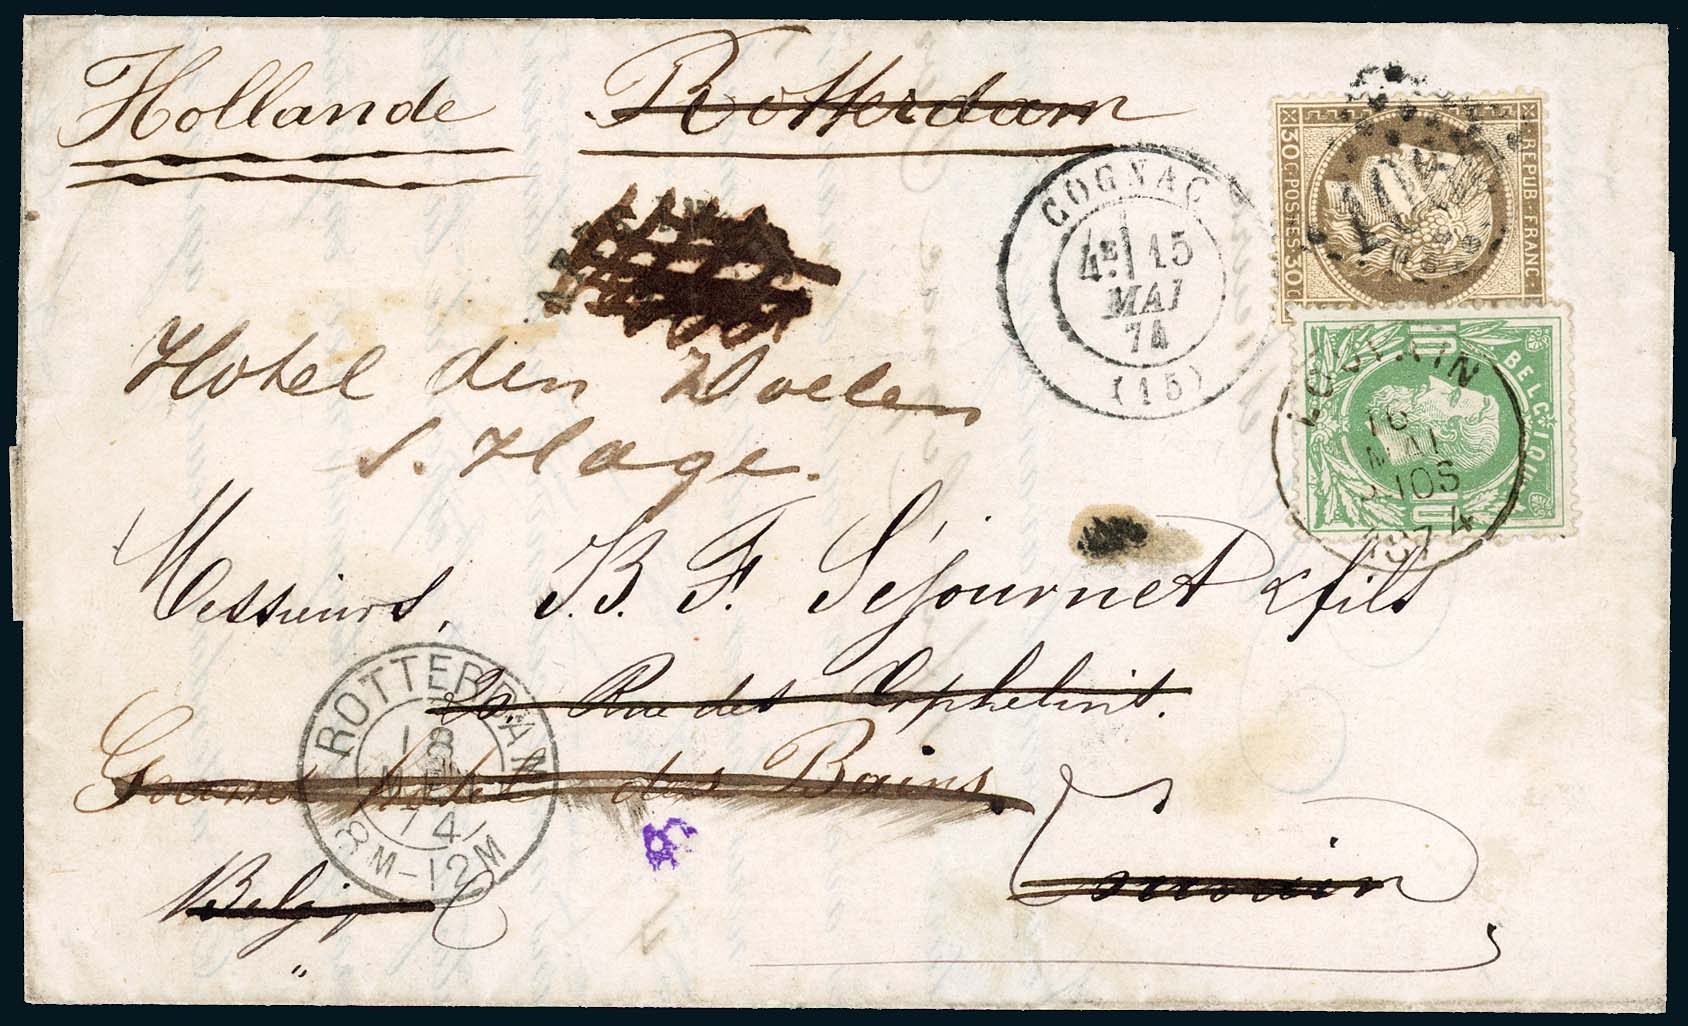 Hollande Rotterdam
COGNAC
4E 15
MAI
74
(15)
REPUB. FRANC.
30.C. POSTES. 30.C
BELGIQUE
LOUVAIN
16
MAI
10S
1874
Hotel den Doelen
s. Hage.
Messieurs, B. F. Séjournet & fils
20. Rue des Orphelins.
Grand hotel des Bains.
ROTTERDAM
18
MEI
74
8M-12M
Louvain
Belgique
"